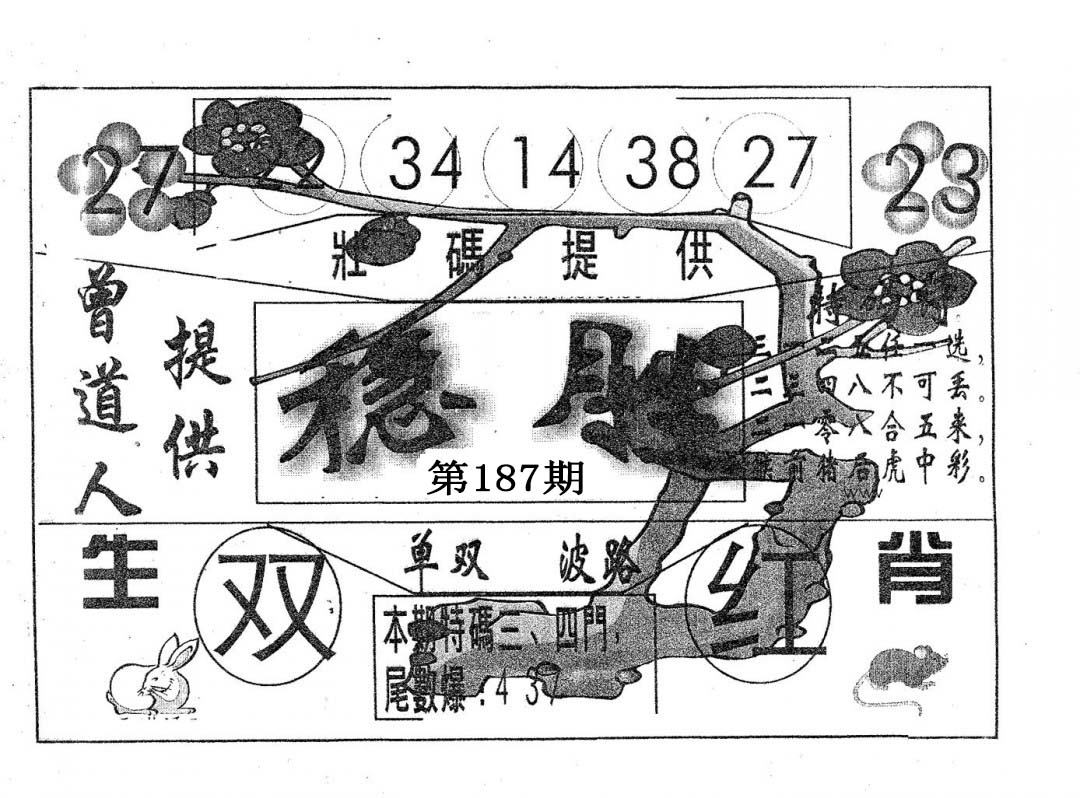 27
34 14 38 27
23
壯碼提供
曾道人
提供
穩胜
第187期
五任一选，
二三四八不可丢。
零八合五来，
猪后虎中彩。
www
生
双
单双 波路
红
肖
本期特碼三、四門，
尾數爆：4 3